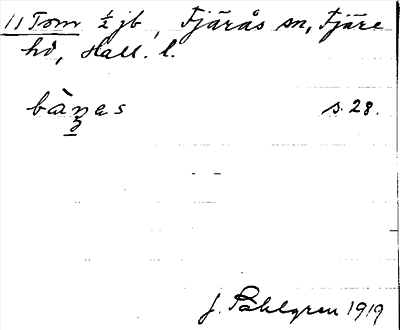 11 Tom ½ jb, Fjärås sn, Fjäre
hd, Hall. l.
bàŋas s. 28.
J. Påhlgren 1919